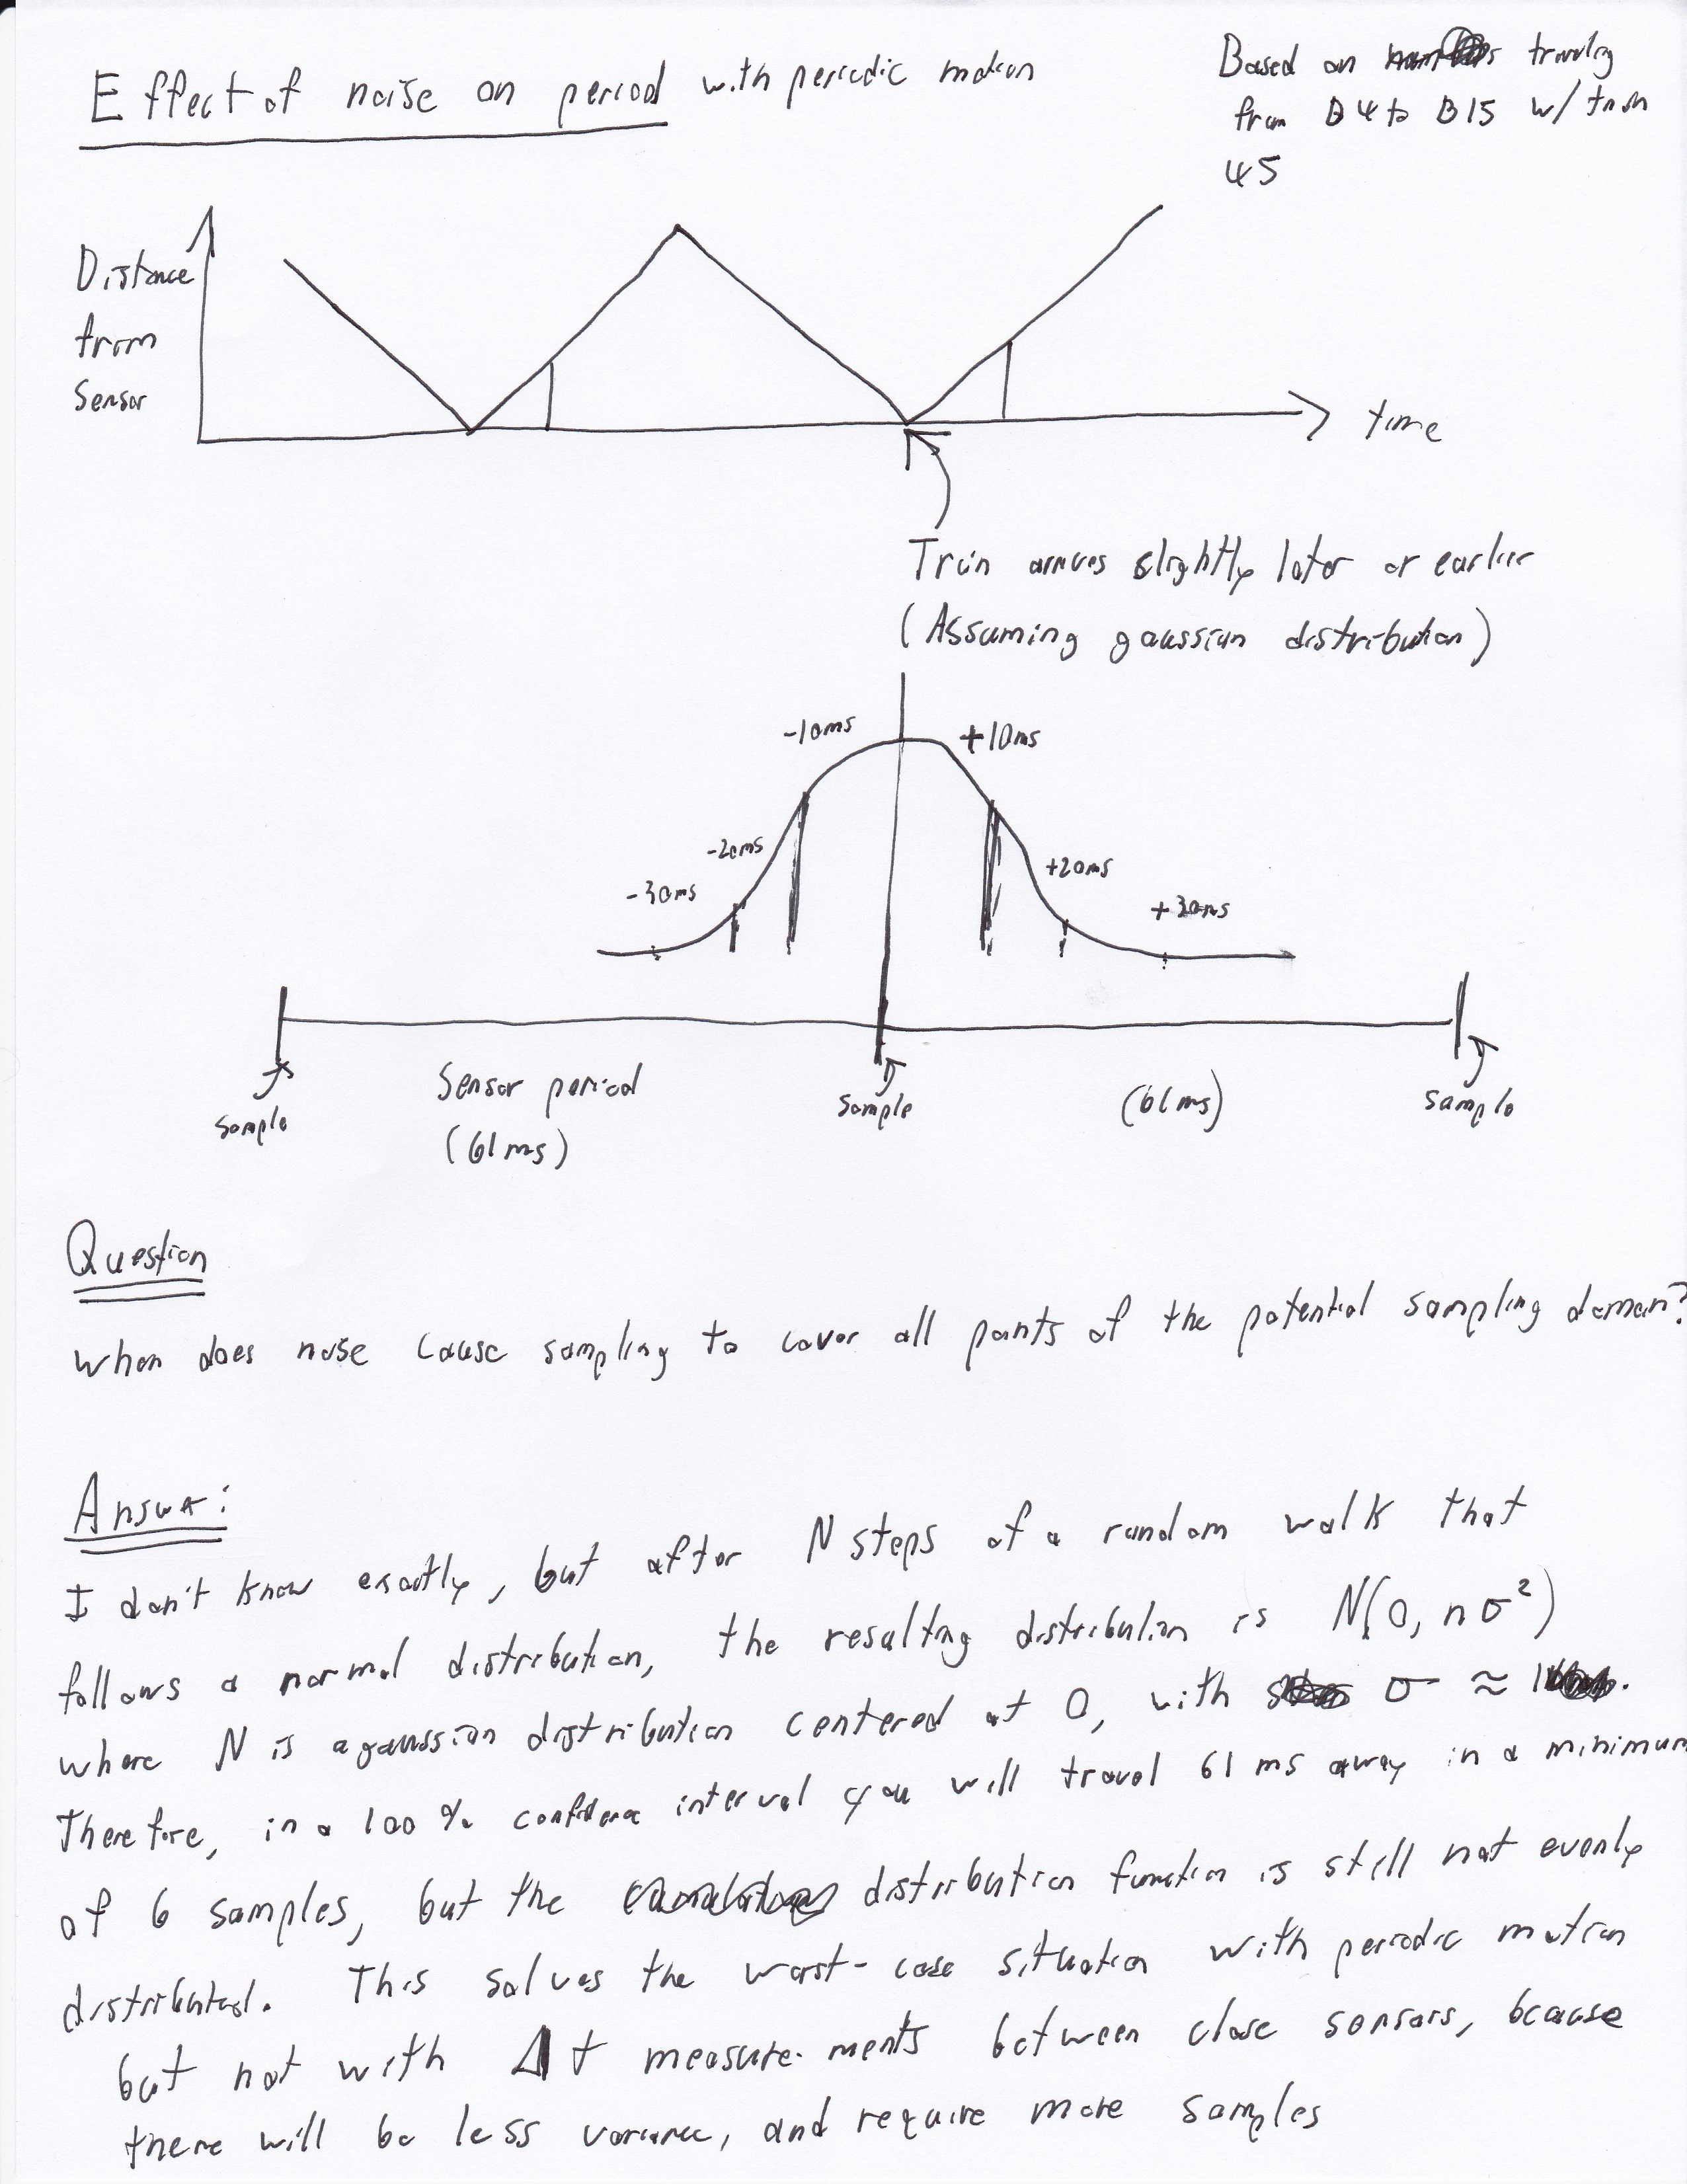 Effect of noise on period with periodic motion
Based on traveling
from B4 to B15 w/ train
45
Distance
from
Sensor
time
Train arrives slightly later or earlier
(Assuming gaussian distribution)
-10ms
+10ms
-20ms
+20ms
-30ms
+30ms
Sensor period
(61ms)
(61ms)
sample
sample
sample
Question
when does noise cause sampling to cover all points of the potential sampling domain?
Answer:
I don't know exactly, but after N steps of a random walk that
follows a normal distribution, the resulting distribution is N(0, nσ²)
where N is a gaussian distribution centered at 0, with σ ≈
Therefore, in a 100% confidence interval you will travel 61 ms away in a minimum
of 6 samples, but the distribution function is still not evenly
distributed. This solves the worst-case situation with periodic motion
but not with Δt measurements between close sensors, because
there will be less variance, and require more samples